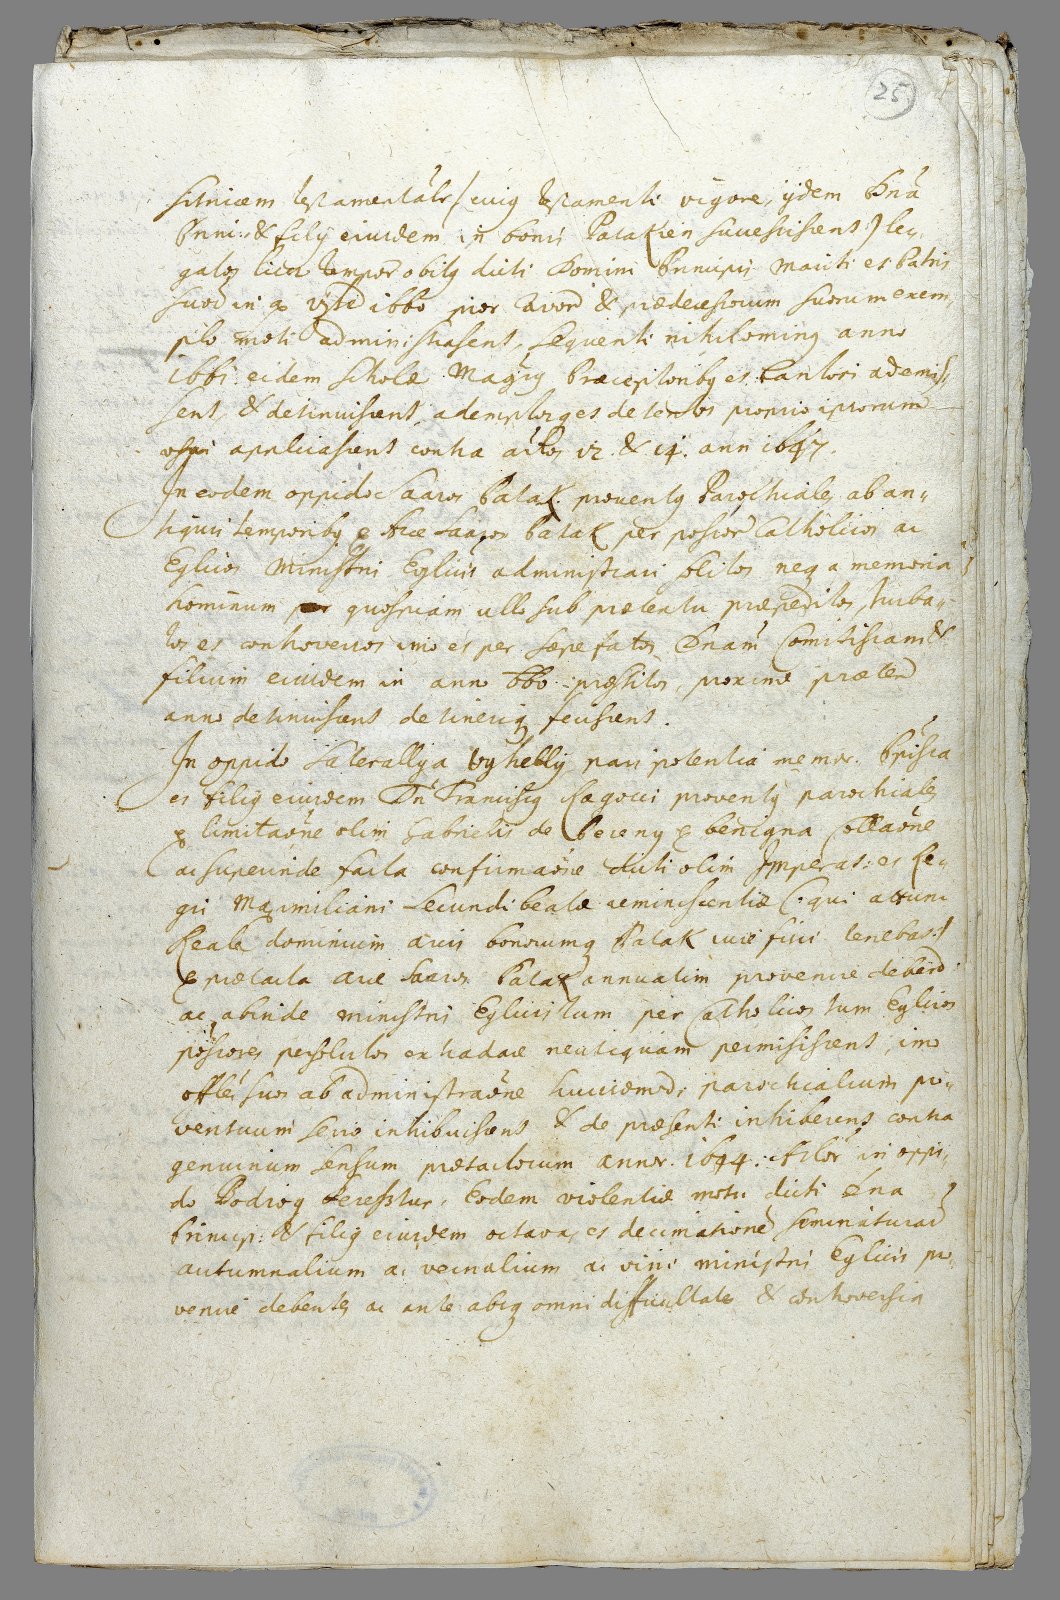 25
testamentalr (cuig testamenti vigore, ijdem Dna
& filij eiusdem in bonis Patakien successissent) le-
gatos licet tempor obitg dicti Domini Principis mariti et Patris
suor in & 1660 pior & praedecessorum suorum exem-
plo moti administrasent, sequenti nihiloming anno
1661 eidem scholae Magris Praeceptoribg et Cantori ademis-
sent, & detinuissent ademptosqes detentos proprio ipsorum
usui applicassent contra artlos 12. & 14. ann 1647.
In eodem oppido Saaros Patak proventg Parochiales ab an-
tiquis temporibg & Arce Saaros Patak per possor Catholicos ac
Eglicos Ministris Eglicis administrari solitos neq a memoria
hominum per quospiam ullo sub praetextu praepeditos, turba-
tos et controversos imo et per saepe fatos Dnam Comitissam &
filium eiusdem in anno 660 praestitos, proxime praeterd
anno detinuissent detineriq fecissent.
In oppido Satorallya Vyhelly pari potentia memor. Prissa
et filig eiusdem Dn Francisg Ragoci proventg parochiales
& limitaone olim Gabrielis de Pereny & benigna collaone
ac superinde facta confirmaone dicti olim Imperat: et Re-
gis Maximiliani Secundi beatae reminiscentiae (qui actum
Reale dominium arcis bonorumq Patak iure fisci tenebat)
& praetacta arce Saaros Patak annuatim provenire deberd
ac abinde ministris Eglicis tum per Catholicos tum Eglicos
possores persolutos extradare neutiquam permisissent, imo
offles suos ab administraone huiusmodi parochialium pro-
ventuum serio inhibuissent & de praesenti inhiberent contra
genuinum sensum praetactorum annor. 1644. Artlor in oppi-
do Bodrog Keresztur, Eodem violentiae motu dicti Dna
Princip: & filig eiusdem octavas et decimatione seminaturar
autumnalium ac vernalium ac vini ministris Eglicis pro-
venire debentes ac ante absq omni difficultate & controversia